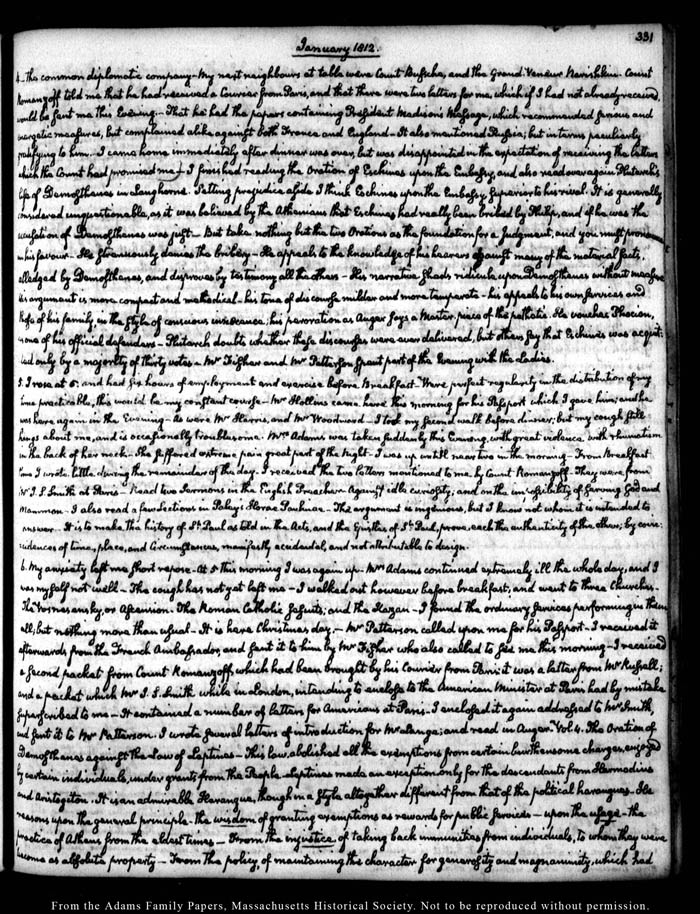 331
January 1812.
4. The common diplomatic company - My next neighbours at table were Count Bussche, and the Grand Veneur Narishkin. Count
Romanzoff told me that he had received a Courier from Paris, and that there were two letters for me, which if I had not already received,
would be sent me this Evening. - That he had the papers containing President Madison's Message, which recommended serious and
energetic measures, but complained alike against both France and England - It also mentioned Russia; but in terms peculiarly
gratifying to him. - I came home immediately after dinner was over, but was disappointed in the expectation of receiving the letters
which the Count had promised me. - I finished reading the Oration of Eschines upon the Embassy, and also read over again Plutarch's
life of Demosthenes in Langhorne. Setting prejudice aside I think Eschines upon the Embassy superior to his rival. It is generally
considered unquestionable, as it was believed by the Athenians that Eschines had really been bribed by Philip, and if he was the
accusation of Demosthenes was just. - But take nothing but the two Orations as the foundation for a Judgment, and you must pronounce
in his favour - He strenuously denies the bribery - He appeals to the knowledge of his hearers against many of the material facts,
alledged by Demosthenes, and disproves by testimony all the others - His narrative sheds ridicule upon Demosthenes without measure
his argument is more compact and methodical - his tone of discourse milder and more temperate - his appeals to his own services and
those of his family, in the style of conscious innocence, his peroration as Auger says a Master-piece of the pathetic. He vouches Phocion,
as one of his official defenders - Plutarch doubts whether these discourses were ever delivered, but others say that Eschines was acquit-
ted only by a majority of thirty votes - Mr Fisher and Mr Patterson spent part of the Evening with the Ladies.
5. I rose at 5; and had six hours of employment and exercise before Breakfast. Were perfect regularity in the distribution of my
time practicable, this would be my constant course - Mr Hollins came here this morning for his Passport which I gave him; and he
was here again in the Evening - As were Mr Harris, and Mr Woodward - I took my second walk before dinner; but my cough still
hangs about me, and is occasionally troublesome. Mrs Adams was taken suddenly this Evening with great violence with rheumatism
in the back of her neck. She suffered extreme pain great part of the Night - I was up until near two in the morning - From Breakfast
time I wrote little during the remainder of the day. I received the two letters mentioned to me by Count Romanzoff. They were from
Mr J. S. Smith at Paris - Read two Sermons in the English Preacher. Against idle curiosity, and on the impossibility of serving God and
Mammon. - I also read a few Sections in Paley's Horae Paulinae. The argument is ingenious, but I know not whom it is intended to
answer. - It is to make the history of St Paul as told in the Acts, and the Epistles of St Paul, prove, each the authenticity of the other; by coin-
cidences of time, place, and Circumstances, manifestly accidental, and not attributable to design.
6. My anxiety left me short repose - At 5 this morning I was again up - Mrs Adams continued extremely ill the whole day, and I
was myself not well - The cough has not yet left me - I walked out however before breakfast, and went to three Churches.
The Vosnesensky, or Ascension. The Roman Catholic Jesuits, and the Kazan - I found the ordinary services performing in them
all; but nothing more than usual - It is here Christmas day. - Mr Patterson called upon me for his Passport - I received it
afterwards from the French Ambassador, and sent it to him by Mr Fisher who also called to see me this morning - I received
a second packet from Count Romanzoff, which had been brought by his Courier from Paris: it was a letter from Mr Russell;
and a packet which Mr J. S. Smith while in London, intending to enclose to the American Minister at Paris had by mistake
superscribed to me - It contained a number of letters for Americans at Paris - I enclosed it again addressed to Mr Smith,
and sent it to Mr Patterson. I wrote several letters of introduction for Mr Lange; and read in Auger Vol 4. The Oration of
Demosthenes against the Law of Leptines - This law, abolished all the exemptions from certain burthensome charges, enjoyed
by certain individuals, under grants from the People. Leptines made an exception only for the descendants from Harmodius
and Aristogiton. It is an admirable Harangue, though in a style altogether different from that of the political harangues. He
reasons upon the general principle - the wisdom of granting exemptions as rewards for public services - upon the usage - the
practice of Athens from the eldest times - From the injustice of taking back immunities from individuals, to whom they were
become as absolute property - From the policy, of maintaining the character for generosity and magnanimity, which had
From the Adams Family Papers, Massachusetts Historical Society. Not to be reproduced without permission.